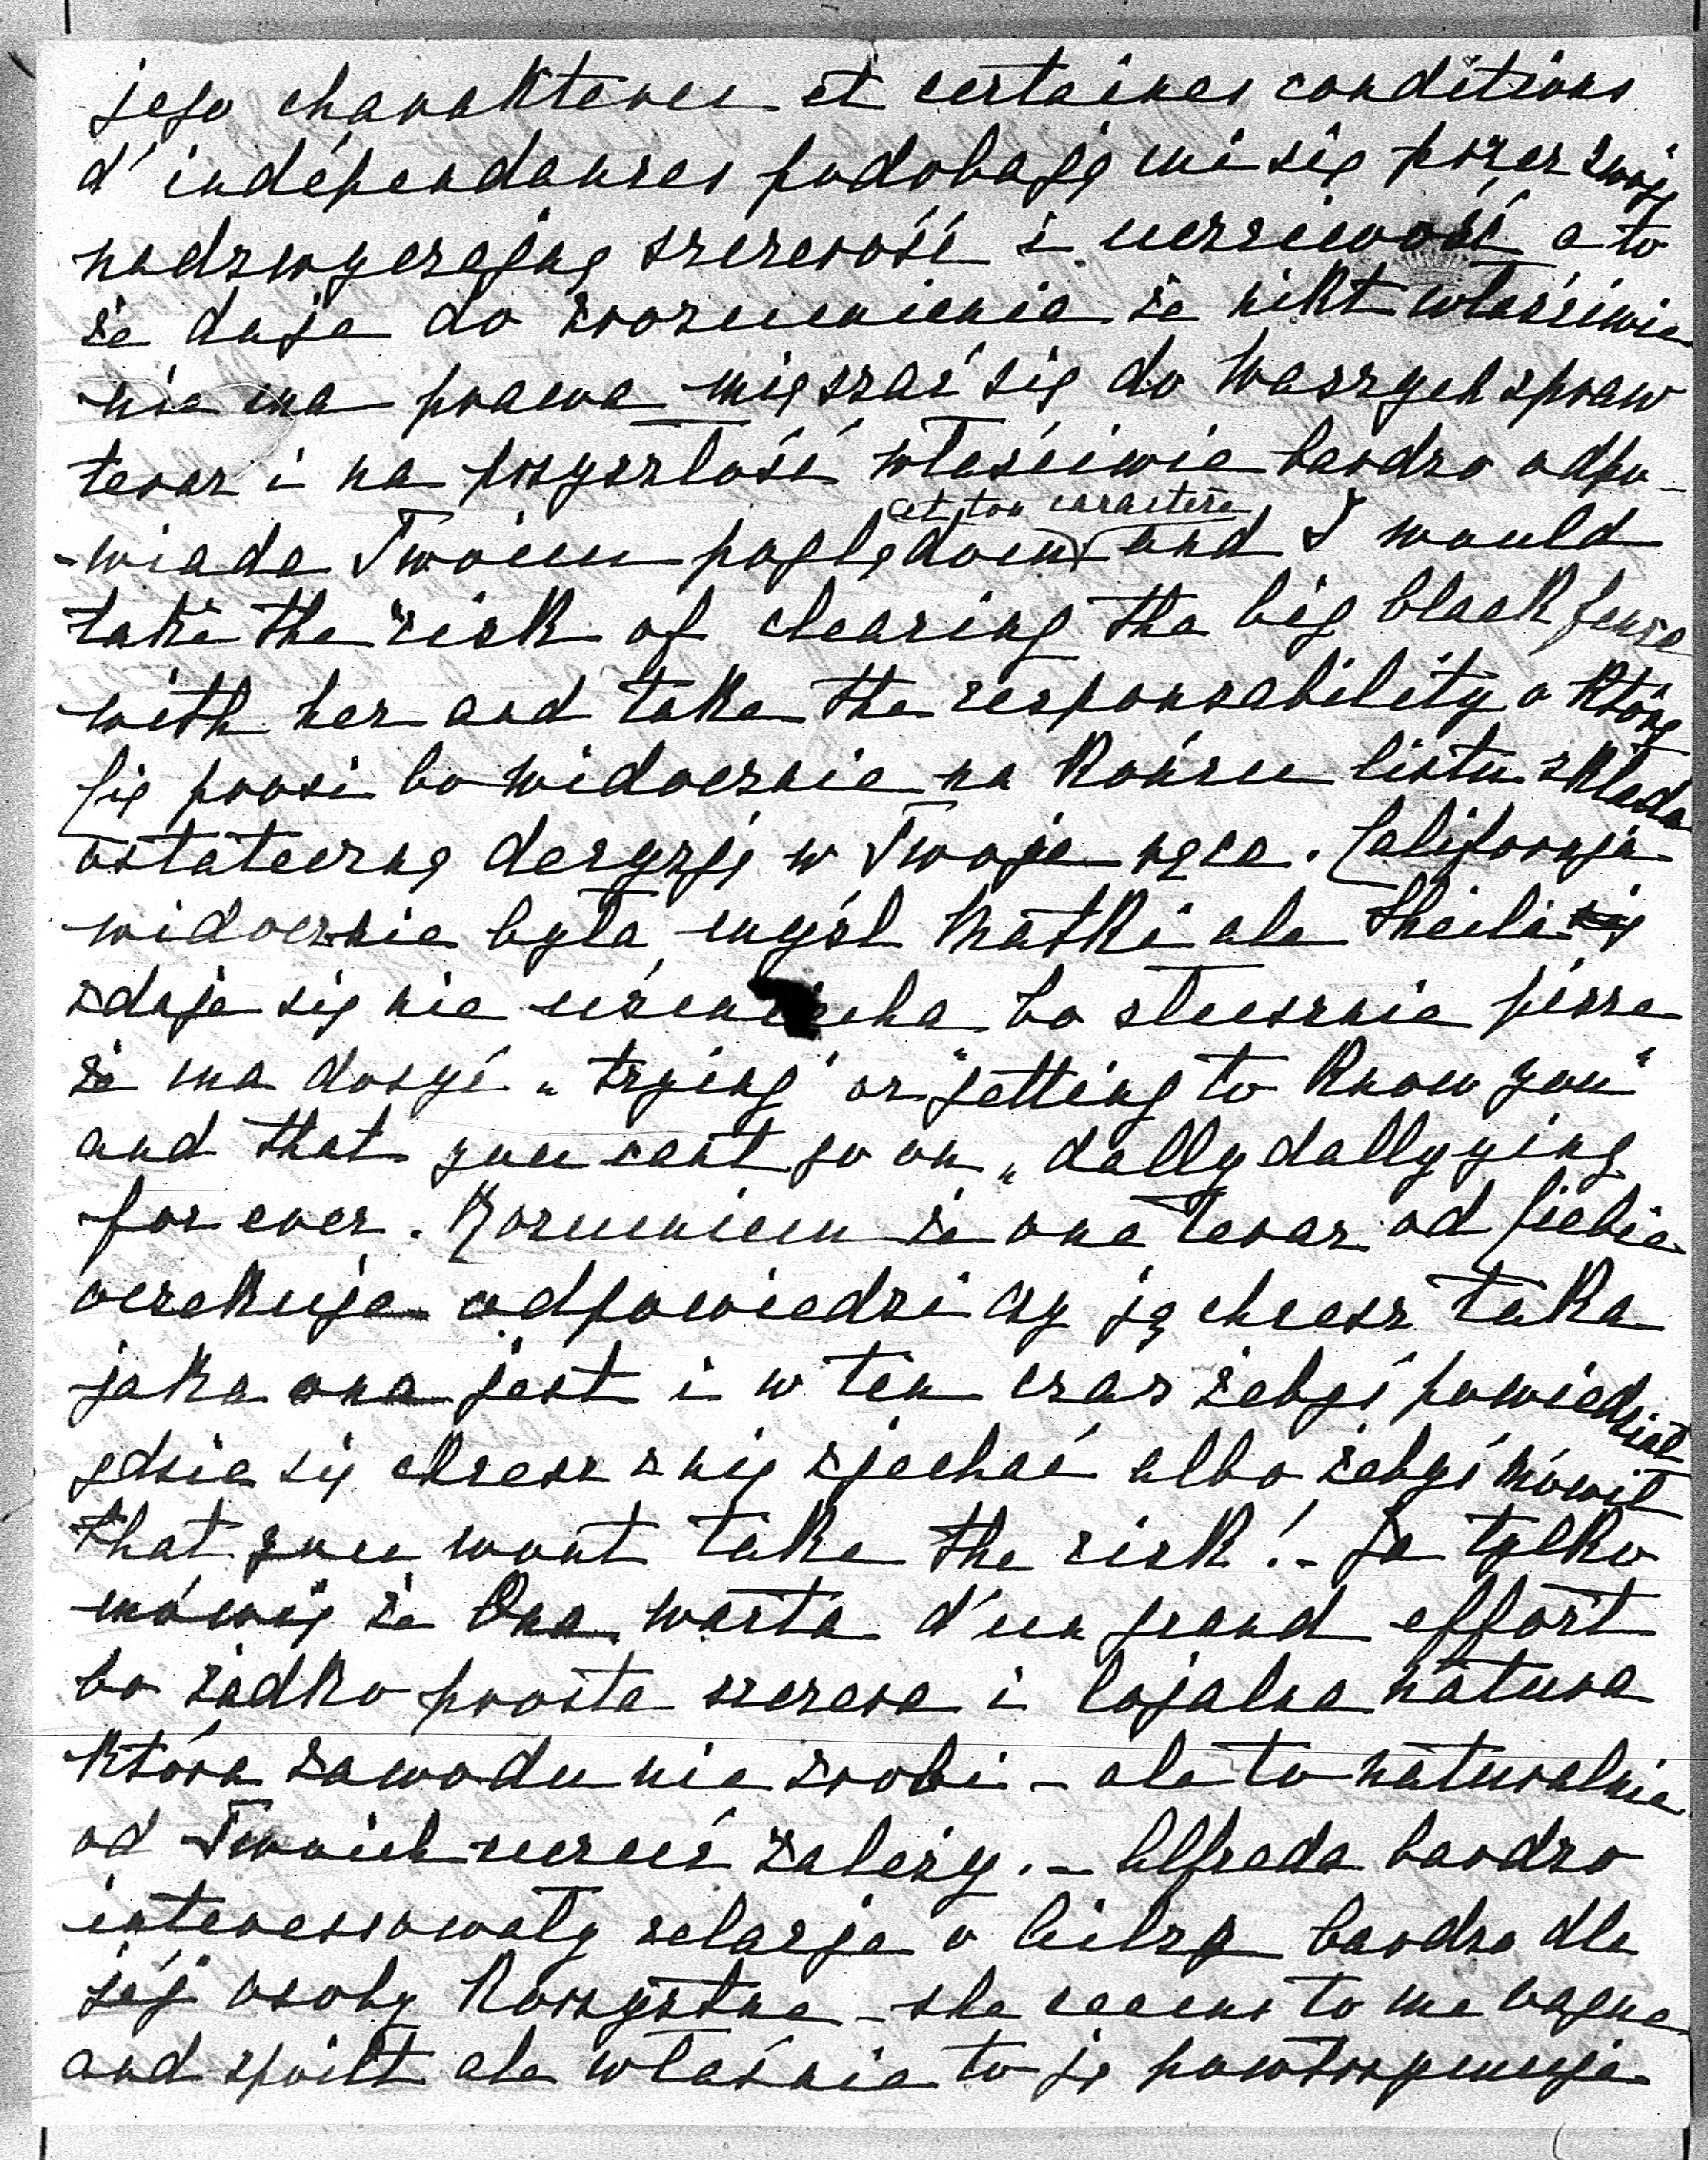 jego charakteru et certaines conditions
d'indépendances podobają mi się przez swoją
nadzwyczajną szczerość i uczciwość a to
że daje do zrozumienia że nikt właściwie
nie ma prawa mięszać się do Waszych spraw
teraz i na przyszłość właściwie bardzo odpo-
et ton caractère
-wiada Twoim poglądom and I would
take the risk of clearing the big black fence
with her and take the responsability o którą
Cię prosi bo widocznie na końcu listu składa
ostateczną decyzję w Twoje ręce. California
widocznie była myśl Matki ale Sheili się
zdaje się nie uśmiecha bo słusznie pisze
że ma dosyć „trying" or "getting to know you"
and that you cant go on „dallydallyying
for ever. Rozumiem że ona teraz od Ciebie
oczekuje odpowiedzi czy ją chcesz taka
jaka ona jest i w ten czas żebyś powiedział
gdzie się chcesz z nią zjechać albo żebyś mówił
that you wont take the risk! - Ja tylko
mówię że Ona warta d'un grand effort
bo żadko prosta szczera i lojalna natura
która zawodu nie zrobi - ale to naturalnie
od Twoich uczuć zależy. - Alfreda bardzo
interessowały relacje o bardzo dla
jéj osoby korzystne - she seems to me vague
and spoilt ale właśnie to ją